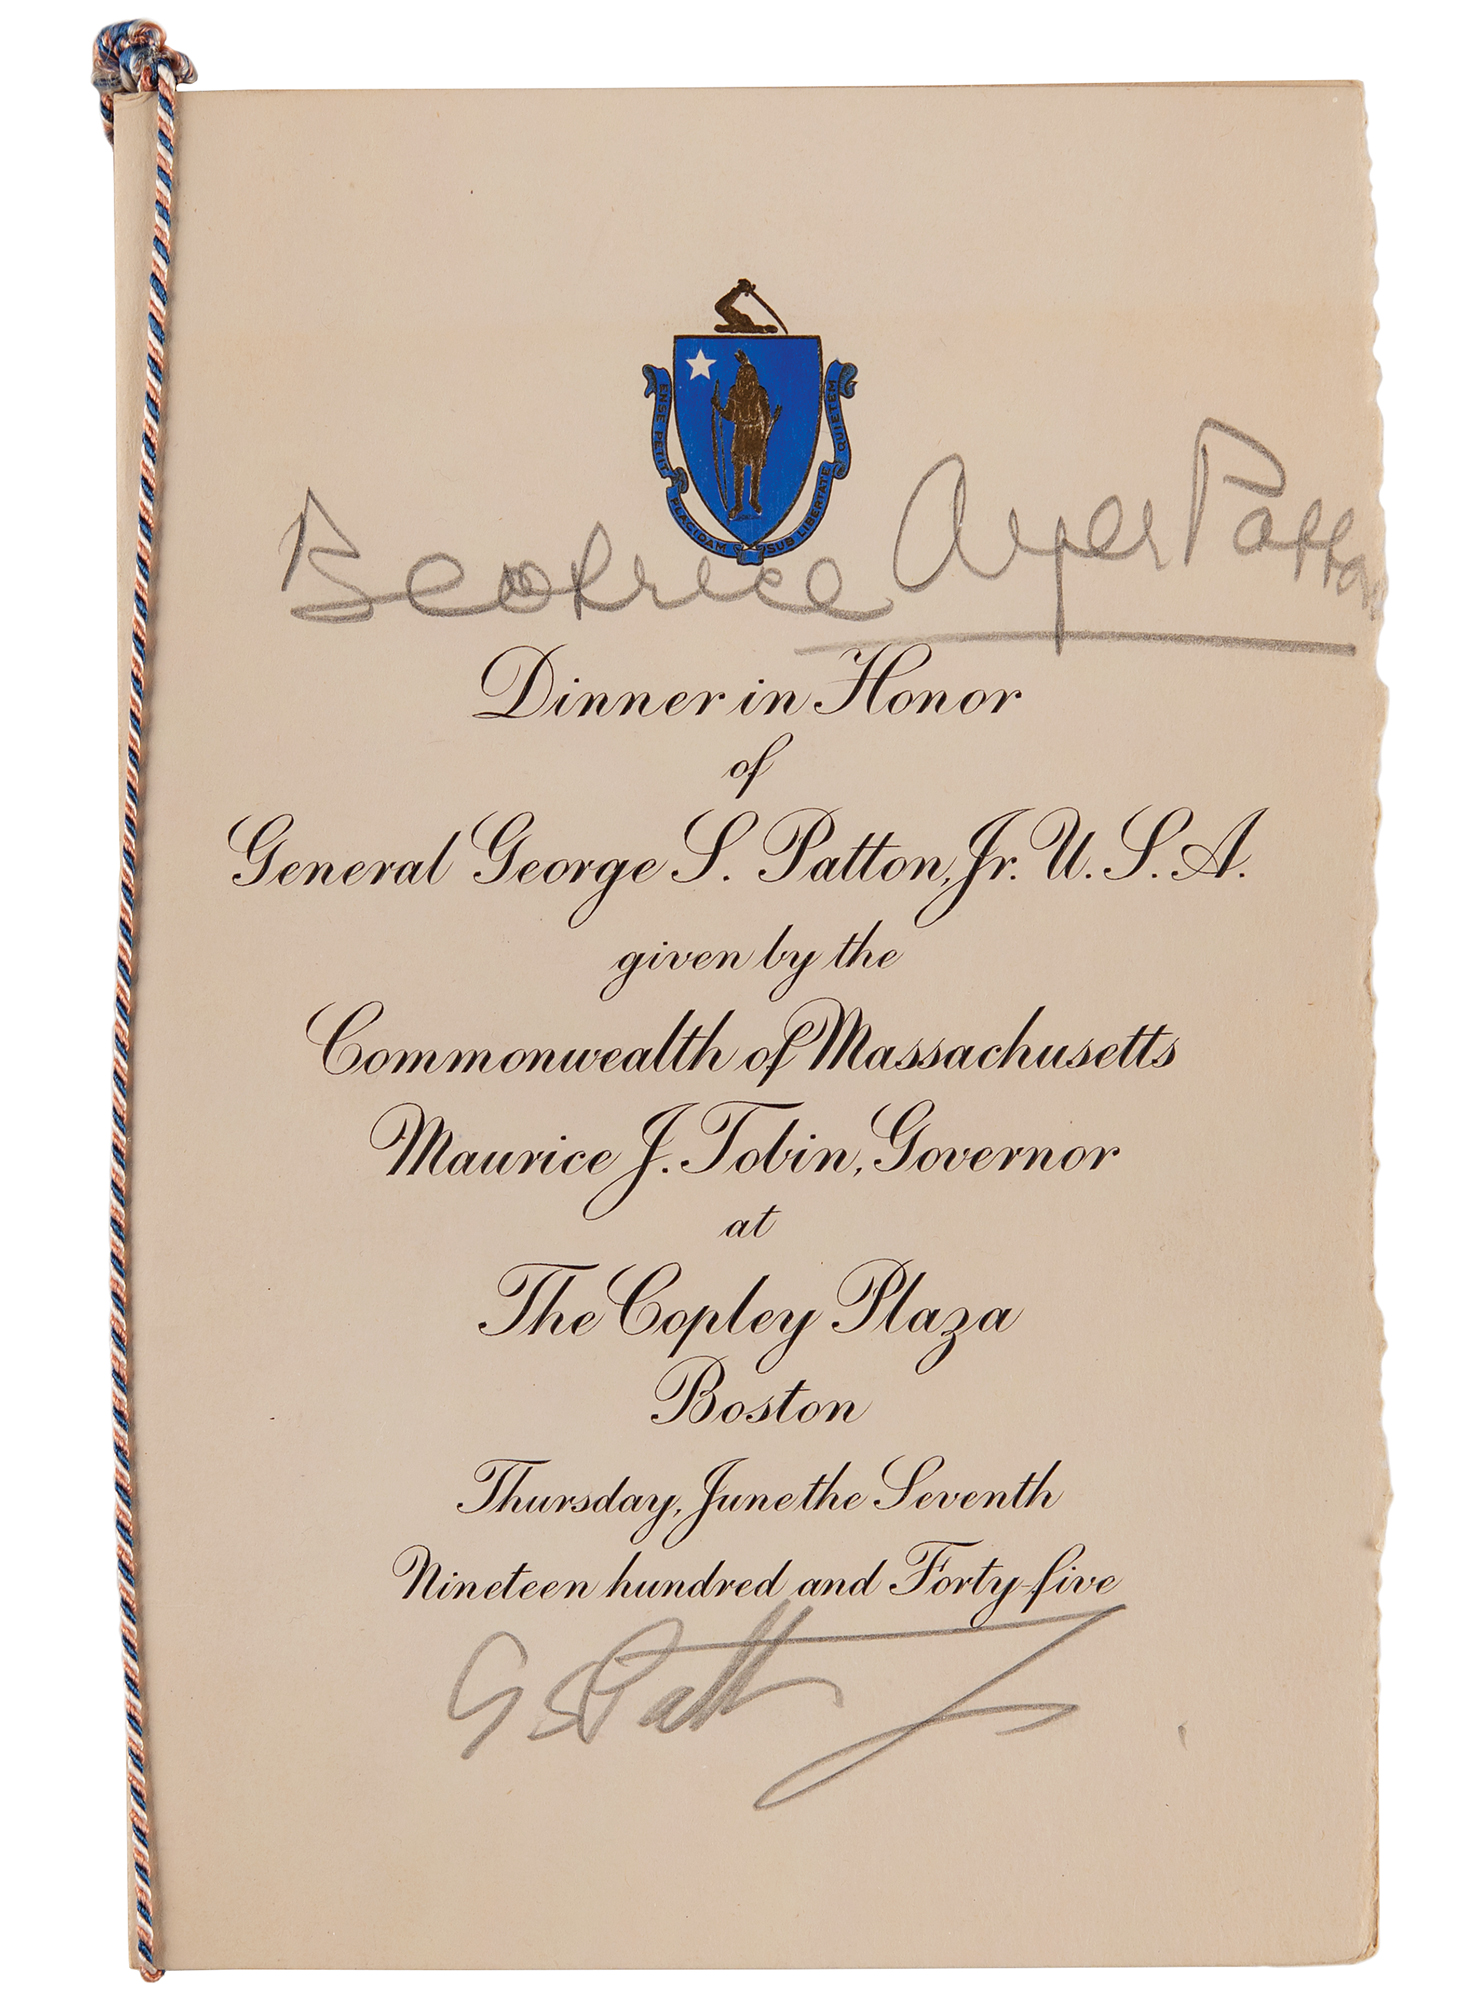 ENSE PETIT PLACIDAM SUB LIBERTATE QUIETEM
Beatrice Ayer Patton
Dinner in Honor
of
General George S. Patton, Jr. U. S. A.
given by the
Commonwealth of Massachusetts
Maurice J. Tobin, Governor
at
The Copley Plaza
Boston
Thursday, June the Seventh
Nineteen hundred and Forty-five
G S Patton Jr